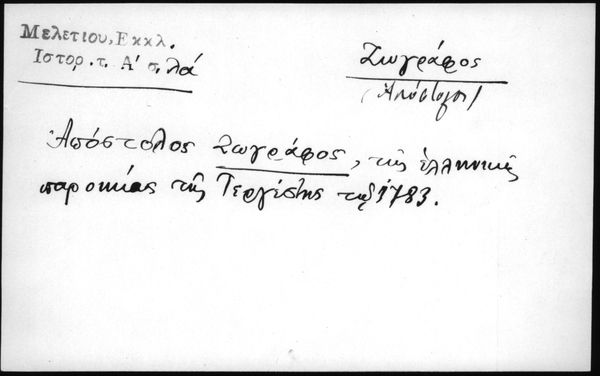 Μελετίου, Εκκλ.
Ιστορ. τ. Α' σ. λά
Ζωγράφος
(Απόστολος)
Ἀπόστολος Ζωγράφος, τῆς ἑλληνικῆς
παροικίας τῆς Τεργέστης τῷ 1783.